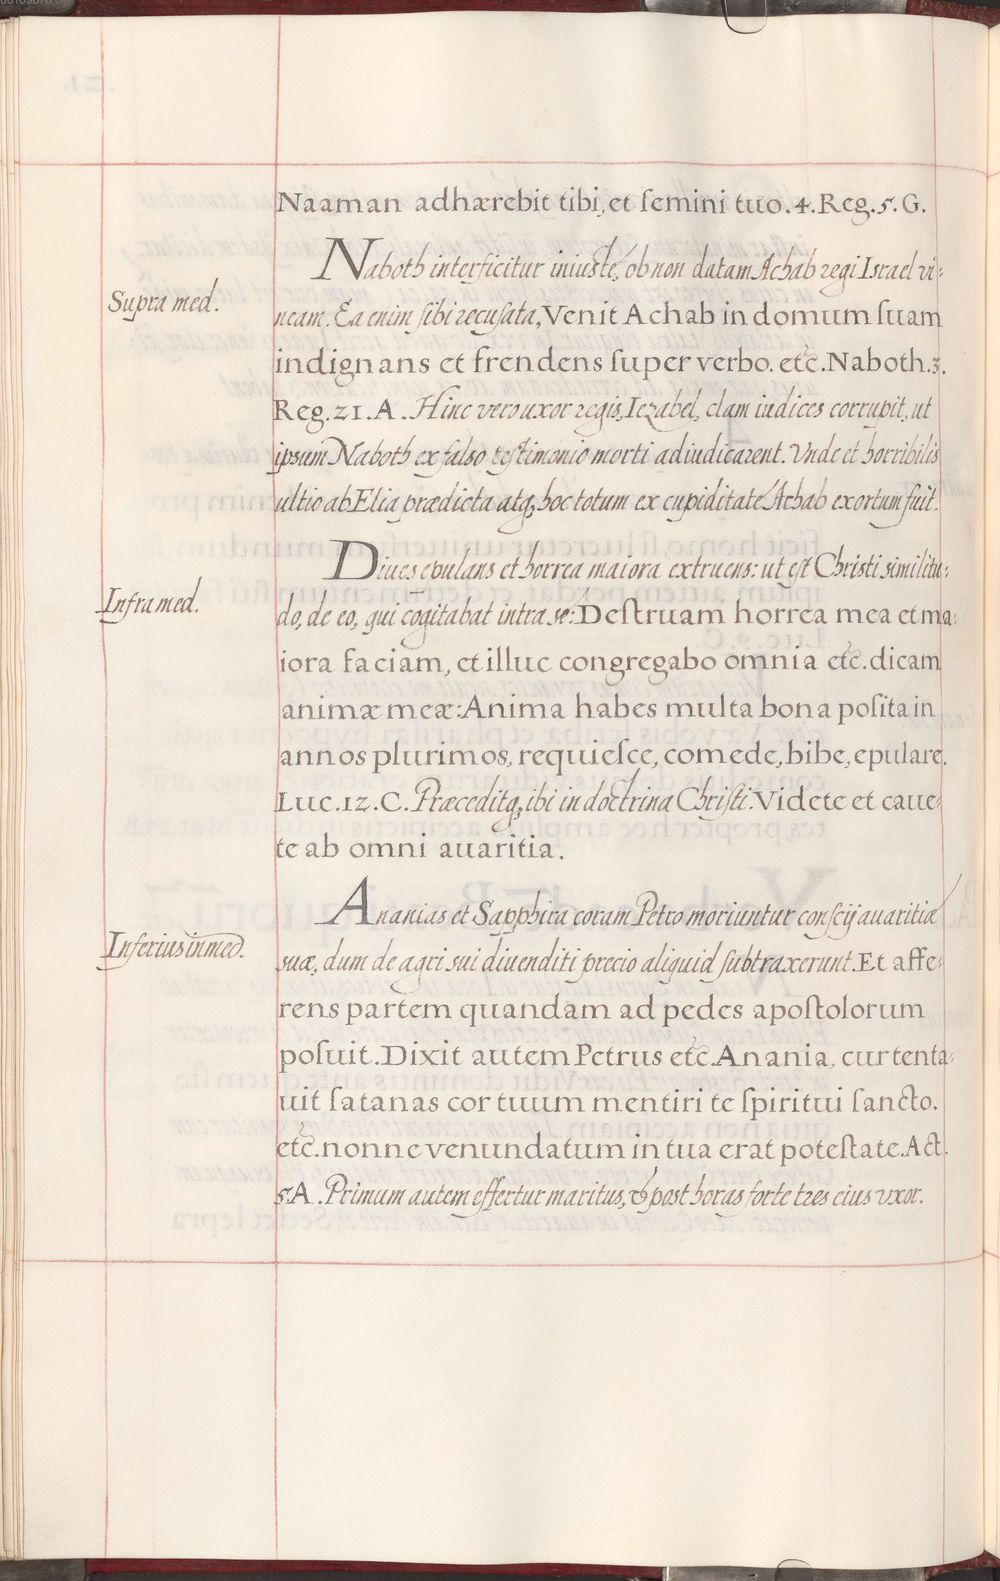 Naaman adhærebit tibi, et ſemini tuo. 4. Reg. 5. G.
Naboth interficitur iniuste, ob non datam Achab regi Israel vi:
Supra med.
neam. Ea enim ſibi recuſata, Venit Achab in domum ſuam
indignans et frendens ſuper verbo. etc. Naboth. 3.
Reg. 21. A. Hinc vero uxor regis, Iezabel, clam iudices corrupit, ut
ipsum Naboth ex falso teſtimonio morti adiudicarent. Vnde et horribilis
ultio ab Elia prædicta atq3 hoc totum ex cupiditate Achab exortum fuit.
Diues epulans et horrea maiora extruens: ut eſt Christi similitu:
Infra med.
do, de eo, qui cogitabat intra se: Deſtruam horrea mea et ma:
iora faciam, et illuc congregabo omnia etc. dicam
animæ meæ: Anima habes multa bona poſita in
annos plurimos, requieſce, comede, bibe, epulare.
Luc. 12. C. Præceditq3 ibi in doctrina Chriſti: Videte et caue:
te ab omni auaritia.
Ananias et Sapphira coram Petro moriuntur conſcij auaritiæ
Inferius in med.
suæ, dum de agri sui diuenditi precio aliquid ſubtraxerunt. Et affe:
rens partem quandam ad pedes apoſtolorum
poſuit. Dixit autem Petrus etc. Anania, cur tenta:
uit ſatanas cor tuum mentiri te ſpiritui ſancto.
etc. nonne venundatum in tua erat poteſtate. Act.
5. A. Primum autem effertur maritus, & post horas forte tres eius vxor.